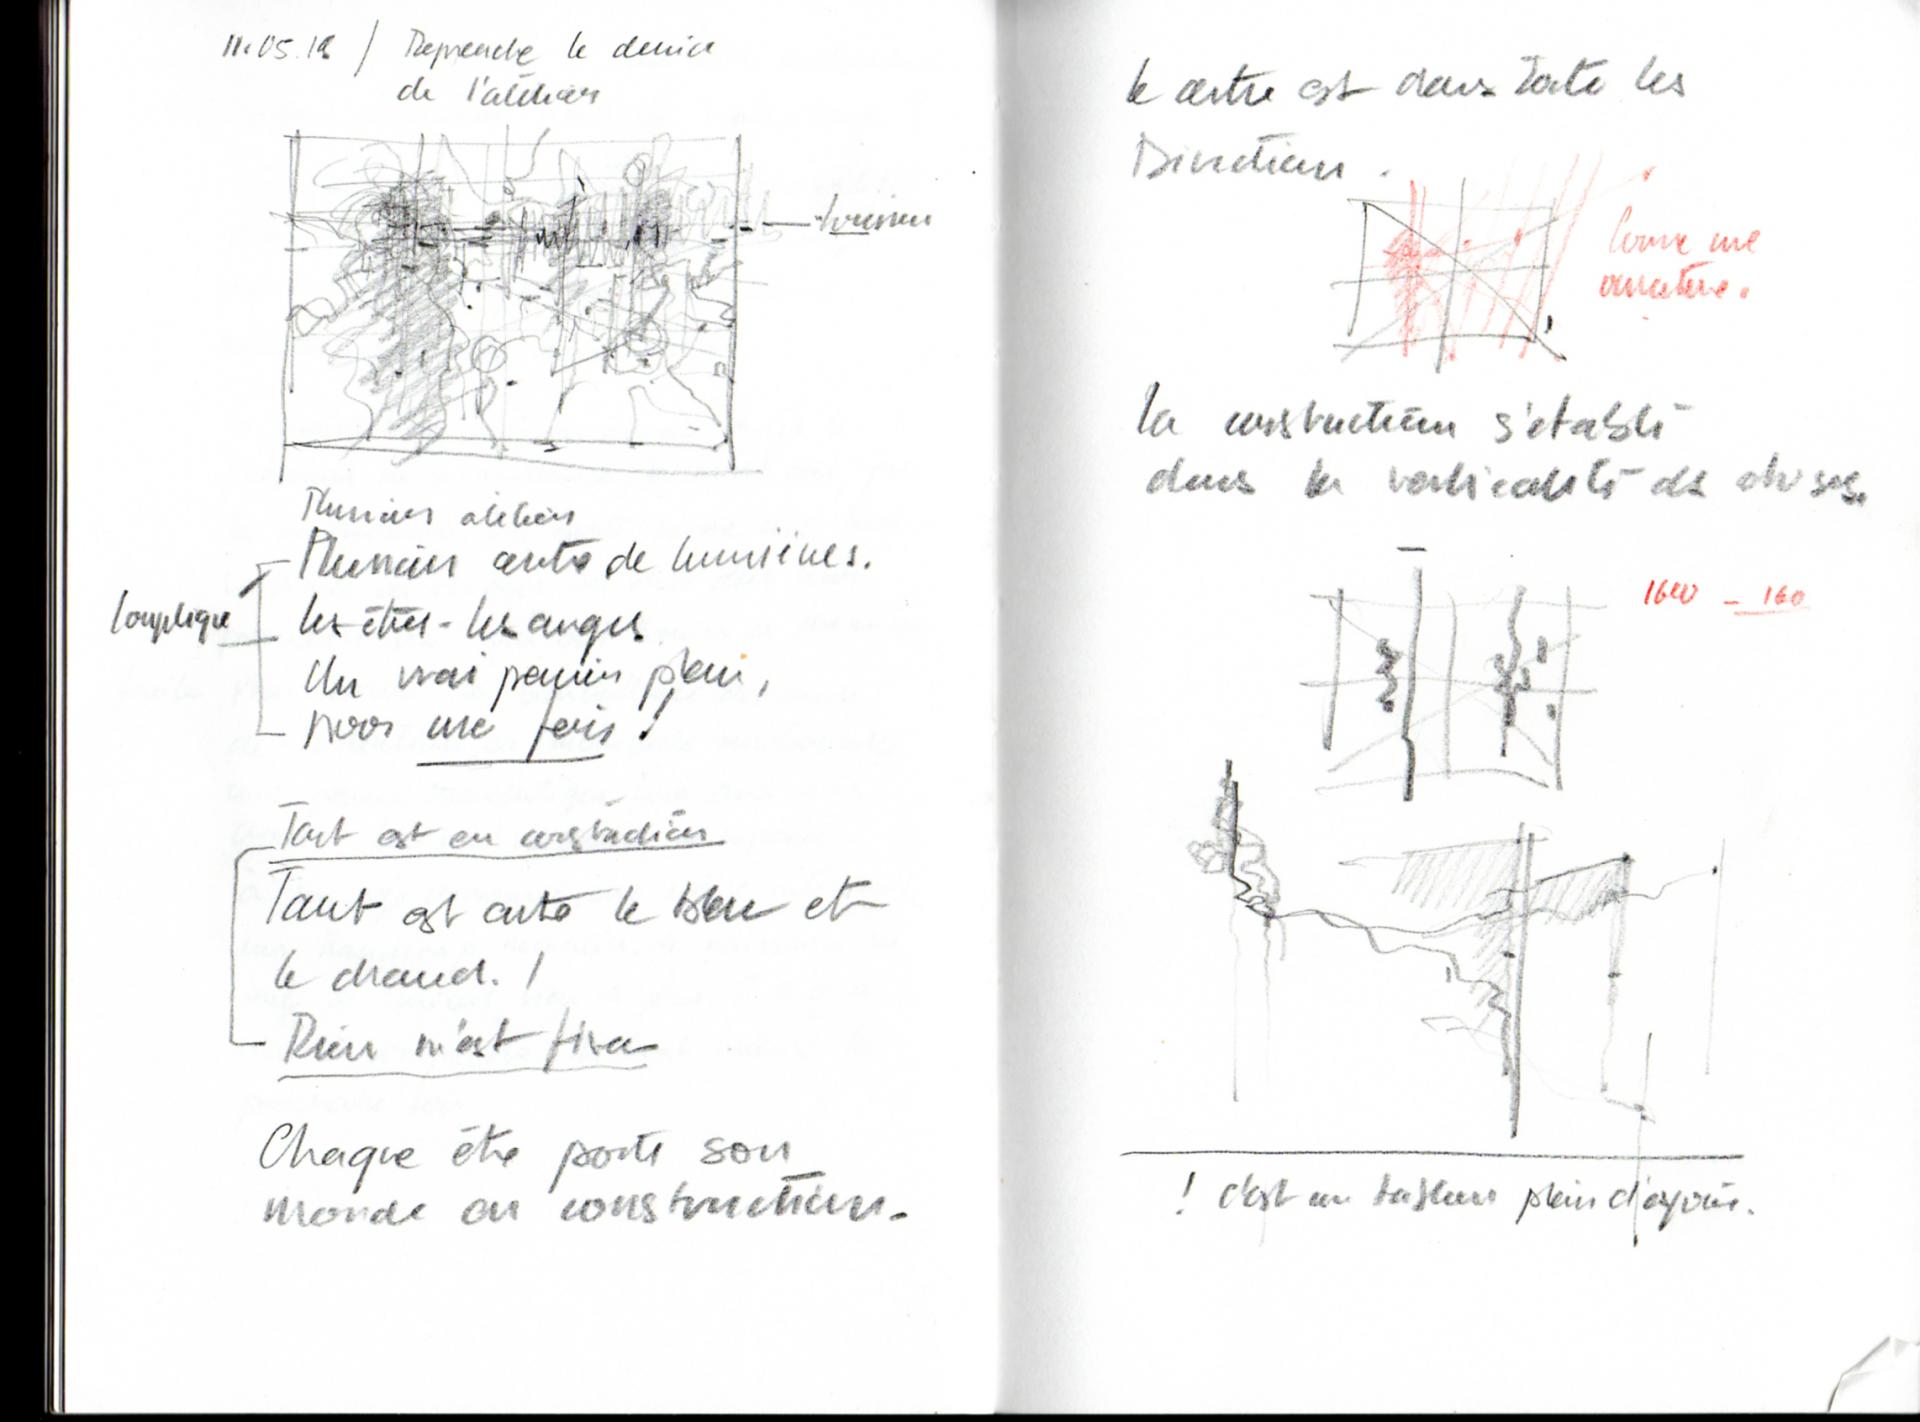 11.05.18 / Reprendre le dessin
de l'atelier
Plusieurs ateliers
Plusieurs centres de lumières.
les êtres - les anges
Un vrai panier plein,
pour une fois !
Tout est en construction
Tout est entre le bleu et
le chaud. !
Rien n'est fixe
Chaque être porte son
monde en construction.
le centre est dans toute les
Directions.
Comme une
ouverture.
la construction s'établi
dans la verticalité des choses.
1600 - 160
! c'est un tableau plein d'espoir.